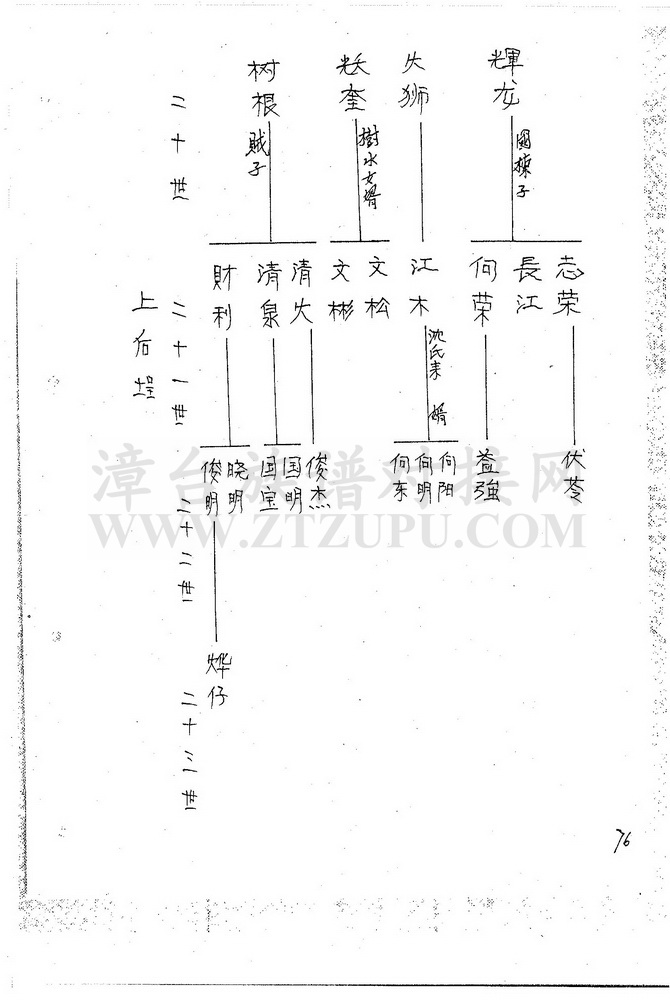 輝龙
國棟子
火狮
奎
樹水女婿
树根
賊子
二十世
志荣
長江
向荣
江木
沈氏来 婿
文松
文彬
清火
清泉
財利
二十一世
上后埕
伏苓
益強
向阳
向明
向东
俊杰
国明
国宝
晓明
俊明
二十二世
烨仔
二十三世
76
漳台族谱对接网
WWW.ZTZUPU.COM